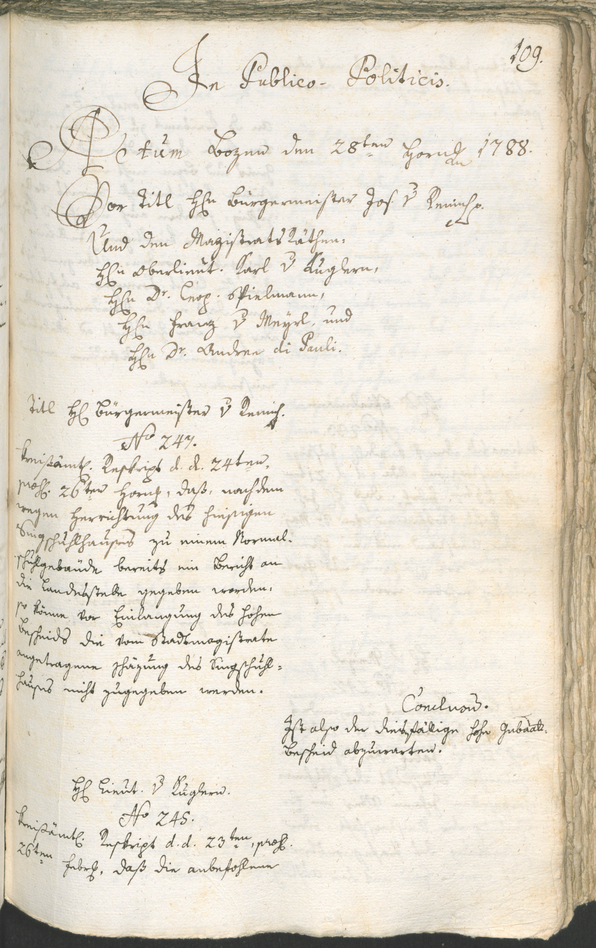 109.
In Publico-Politicis.
Actum Bozen den 28ten Hornung 1788.
Vor Titl Hhn Bürgermeister Jos. v Remich p.
Und den Magistrats Räthen,
Hhn Oberlieut. Karl v Kuglern,
Hhn Dr. Leop. Spielmann,
Hhn Franz v Meyrl, und
Hhn Dr. Andree di Pauli.
Titl Hh Bürgermeister v Remich.
No 247.
Kreisämtl. Reskript d. d. 24ten,
præs. 26ten Hornung, daß, nachdem
wegen Herrichtung des hiesigen
Singschuhlhauses zu einem Normal-
schuhlgebäude bereits ein Bericht an
die Landesstelle gegeben worden,
so könne vor Einlangung des hohen
Bescheids die vom Stadtmagistrate
angetragene Schäzung des Singschuhl-
hauses nicht zugegeben werden.
Conclusum.
Ist also der diesfällige hohe
Bescheid abzuwarten.
Hh Lieut. v Kuglern.
No 245.
Kreisämtl. Reskript d. d. 23ten, præs.
26ten Febr, daß die anbefohlene